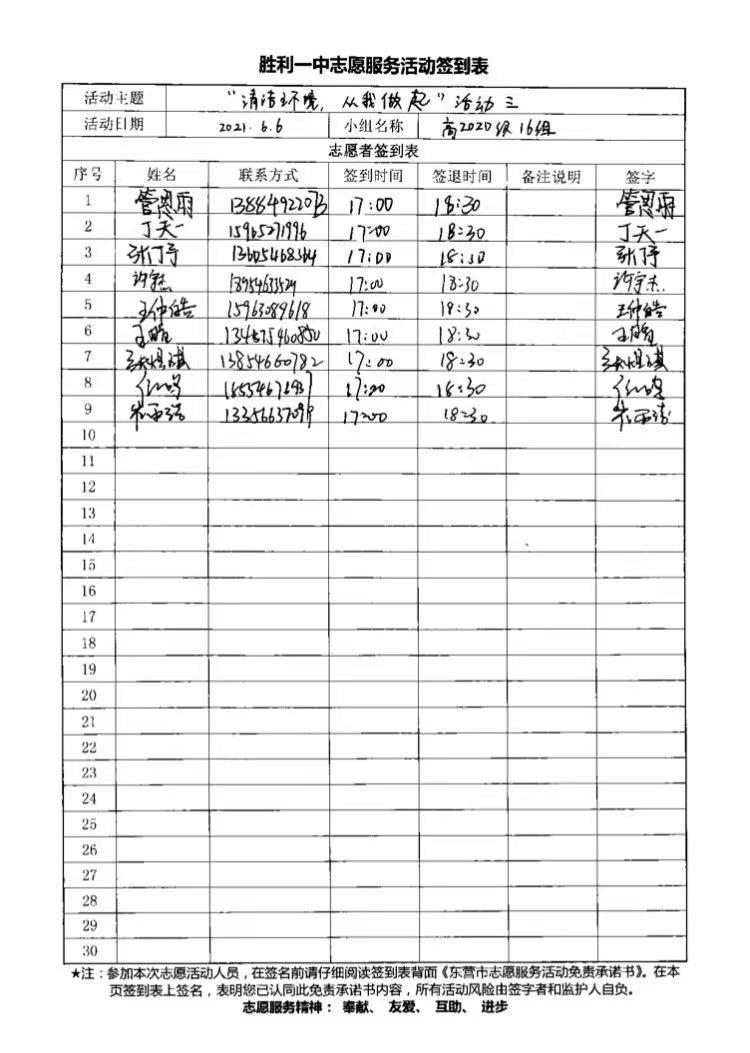 胜利一中志愿服务活动签到表
活动主题 “清洁环境,从我做起”活动三
活动日期 2021.6.6 小组名称 高2020级16组
志愿者签到表
序号 姓名 联系方式 签到时间 签退时间 备注说明 签字
1 管恩雨 17:00 18:30 管恩雨
2 丁天一 15965271996 17:00 18:30 丁天一
3 17:00 18:30
4 17:00 18:30
5 王仲皓 15963089618 17:00 18:30 王仲皓
6 17:00 18:30
7 13854660782 17:00 18:30
8 17:00 18:30
9 17:00 18:30
10
11
12
13
14
15
16
17
18
19
20
21
22
23
24
25
26
27
28
29
30
★注:参加本次志愿活动人员,在签名前请仔细阅读签到表背面《东营市志愿服务活动免责承诺书》。在本
页签到表上签名,表明您已认同此免责承诺书内容,所有活动风险由签字者和监护人自负。
志愿服务精神: 奉献、 友爱、 互助、 进步